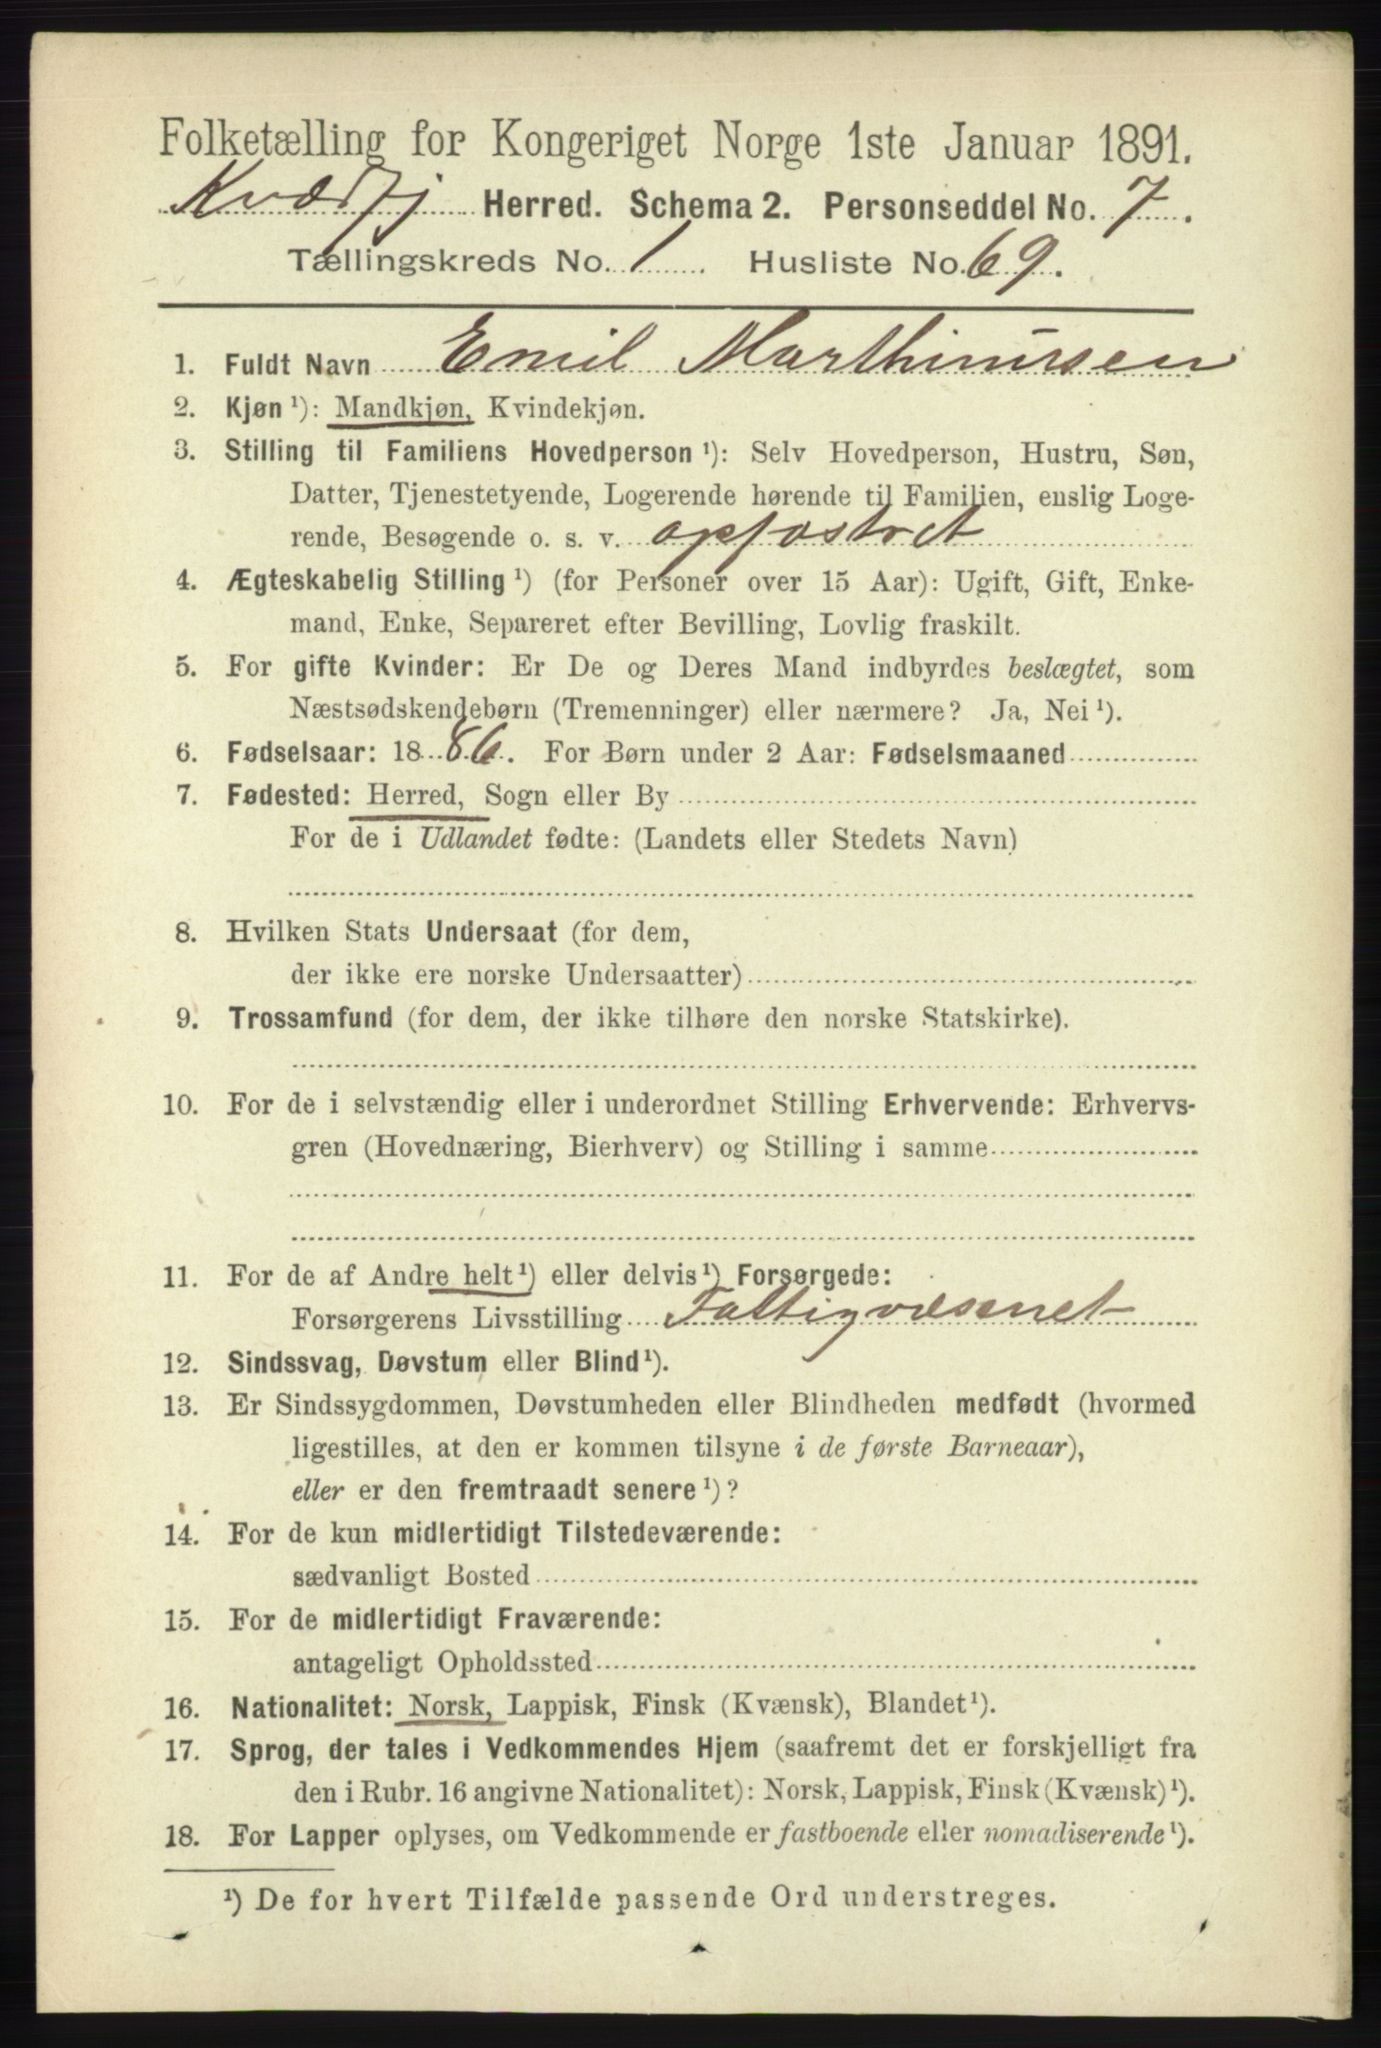 Folketælling for Kongeriget Norge 1ste Januar 1891.
Kvædfj Herred. Schema 2. Personseddel No. 7.
Tællingskreds No. 1 Husliste No. 69.
1. Fuldt Navn Emil Marthinussen
2. Kjøn ¹): Mandkjøn, Kvindekjøn.
3. Stilling til Familiens Hovedperson ¹): Selv Hovedperson, Hustru, Søn,
Datter, Tjenestetyende, Logerende hørende til Familien, enslig Loge-
rende, Besøgende o. s. v. opfostret
4. Ægteskabelig Stilling ¹) (for Personer over 15 Aar): Ugift, Gift, Enke-
mand, Enke, Separeret efter Bevilling, Lovlig fraskilt.
5. For gifte Kvinder: Er De og Deres Mand indbyrdes beslægtet, som
Næstsødskendebørn (Tremenninger) eller nærmere? Ja, Nei ¹).
6. Fødselsaar: 1886. For Børn under 2 Aar: Fødselsmaaned
7. Fødested: Herred, Sogn eller By
For de i Udlandet fødte: (Landets eller Stedets Navn)
8. Hvilken Stats Undersaat (for dem,
der ikke ere norske Undersaatter)
9. Trossamfund (for dem, der ikke tilhøre den norske Statskirke).
10. For de i selvstændig eller i underordnet Stilling Erhvervende: Erhvervs-
gren (Hovednæring, Bierhverv) og Stilling i samme
11. For de af Andre helt ¹) eller delvis ¹) Forsørgede:
Forsørgerens Livsstilling Fattigvæsenet
12. Sindssvag, Døvstum eller Blind ¹).
13. Er Sindssygdommen, Døvstumheden eller Blindheden medfødt (hvormed
ligestilles, at den er kommen tilsyne i de første Barneaar),
eller er den fremtraadt senere ¹)?
14. For de kun midlertidigt Tilstedeværende:
sædvanligt Bosted
15. For de midlertidigt Fraværende:
antageligt Opholdssted
16. Nationalitet: Norsk, Lappisk, Finsk (Kvænsk), Blandet ¹).
17. Sprog, der tales i Vedkommendes Hjem (saafremt det er forskjelligt fra
den i Rubr. 16 angivne Nationalitet): Norsk, Lappisk, Finsk (Kvænsk) ¹).
18. For Lapper oplyses, om Vedkommende er fastboende eller nomadiserende ¹).
¹) De for hvert Tilfælde passende Ord understreges.